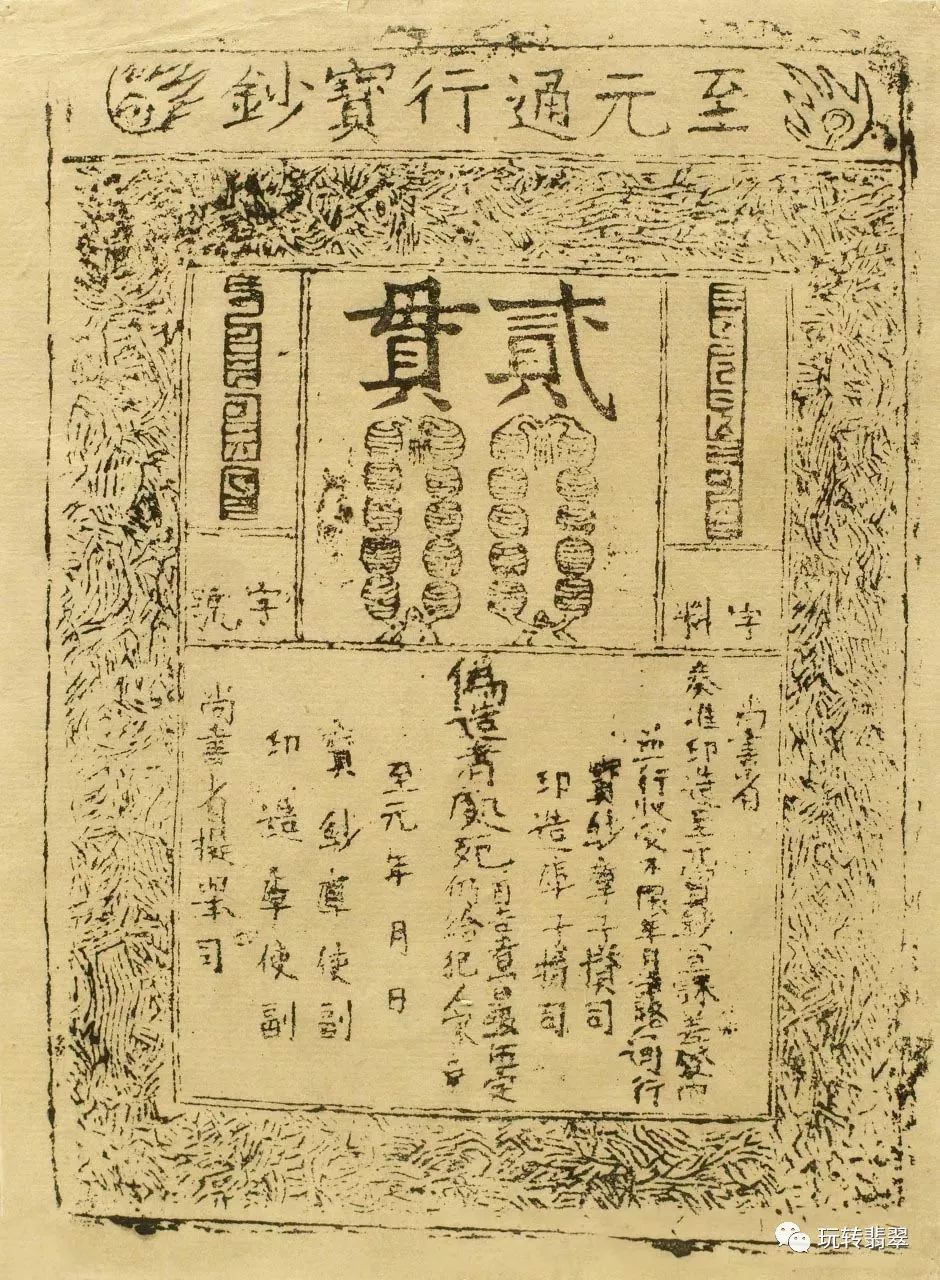 至元通行寶鈔
貳貫
字料
字
尚書省
奏准印造至元寶鈔宣課差役內
並行收受不限年月諸路通行
寶鈔庫子攢司
印造庫子攢司
偽造者處死
仍給犯人家產
至元 年 月 日
寶鈔庫使副
印造庫使副
尚書省提舉司
玩转翡翠